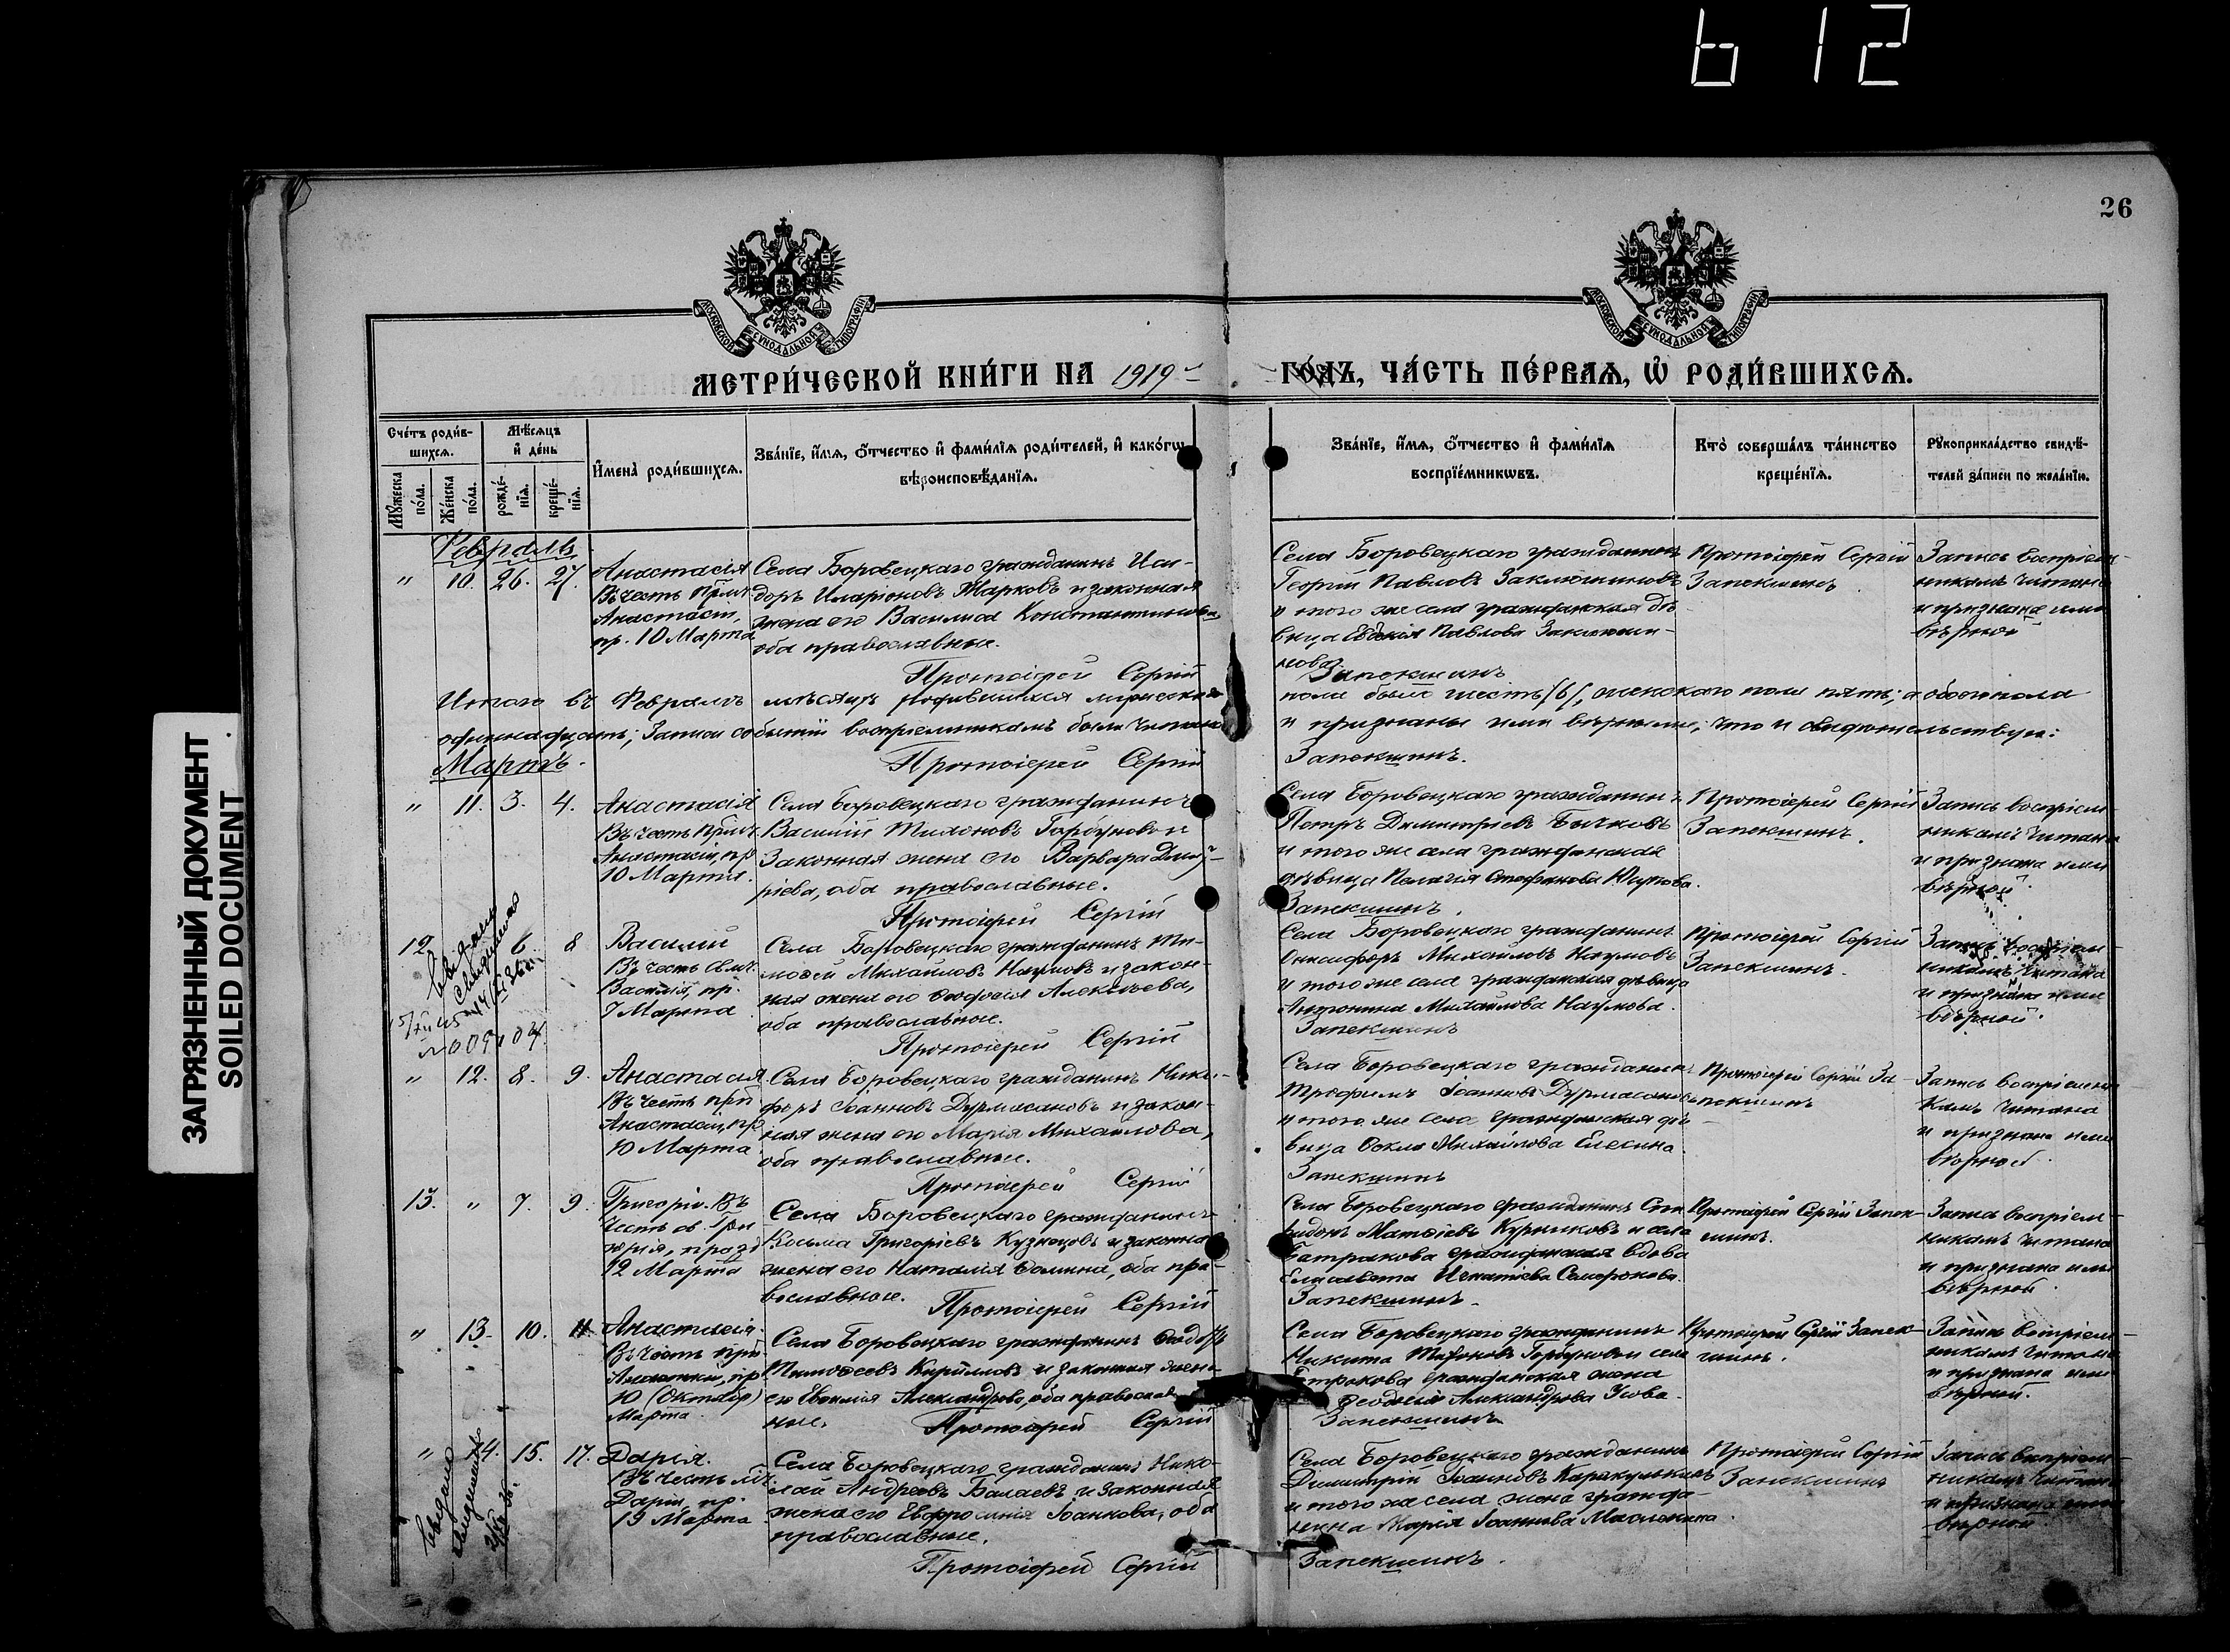 612
26
ЗАГРЯЗНЕННЫЙ ДОКУМЕНТ
SOILED DOCUMENT
МОСКОВСКОЙ СѴНОДАЛЬНОЙ ТИПОГРАФІИ
МОСКОВСКОЙ СѴНОДАЛЬНОЙ ТИПОГРАФІИ
МЕТРИ́ЧЕСКОЙ КНИ́ГИ НА 1919 ГО́ДЪ, ЧА́СТЬ ПЕ́РВАѦ, Ѡ҆ РОДИ́ВШИХСѦ.
Сче́тъ роди́в-
шихсѧ.
Мꙋ́жеска
по́ла.
Же́нска
по́ла.
Мѣ́сѧцъ
и҆ де́нь
рожде́-
нїѧ.
креще́-
нїѧ.
И҆мена̀ роди́вшихсѧ.
Зва́нїе, и҆́мѧ, ѻ҆́тчество и҆ фами́лїѧ роди́телей, и҆ како́гѡ
вѣроисповѣ́данїѧ.
Зва́нїе, и҆́мѧ, ѻ҆́тчество и҆ фами́лїѧ
воспрїе́мникѡвъ.
Кто̀ соверша́лъ та́инство
креще́нїѧ.
Рꙋкоприкла́дство свидѣ́-
телей за́писи по жела́нїю.
Февраль
" 10. 26. 27.
Анастасія
Въ честь Прмч.
пр. 10 Марта
Села Боровецкаго гражданинъ Иси-
доръ Иларіоновъ Жарковъ и законная
жена его Василиса Константинова
оба православные.
Протоіерей Сергій
Села Боровецкаго гражданинъ
Георгій Павловъ Заключниковъ
и того же села гражданская дѣ-
вица Евдокія Павлова Заключни-
кова
Запекшинъ
Протоіерей Сергій
Запекшинъ
Запись воспріем-
никамъ читана
и признана ими
вѣрной
Итого въ Февралѣ мѣсяцѣ родившихся мужескаго пола было шесть /6/, женскаго пола пять; а обоего пола
одиннадцать; Записи событій воспріемникамъ были читаны и признаны ими вѣрными, что и свидѣтельствую:
Протоіерей Сергій Запекшинъ.
Мартъ.
" 11. 3. 4.
Анастасія
Въ честь Прмч.
Анастасіи, пр.
10 Марта.
Села Боровецкаго гражданинъ
Василій Тихоновъ Горбуновъ и
Законная жена его Варвара Димит-
ріева, оба православные.
Протоіерей Сергій
Села Боровецкаго гражданинъ
Петръ Димитріевъ Бычковъ
и того же села гражданская
дѣвица Пелагія Стефанова
Запекшинъ.
Протоіерей Сергій
Запекшинъ.
Запись воспріем-
никамъ читана
и признана ими
вѣрной.
12 6. 8
Василій
Въ честь Свмч.
Василія, пр.
7 Марта
Села Боровецкаго гражданинъ Ти-
моѳей Михайловъ Наумовъ и закон-
ная жена его Ѳеодосія Алексѣева,
оба православные.
Протоіерей Сергій
Села Боровецкаго гражданинъ
Михайловъ Наумовъ
и того же села гражданская дѣвица
Антонина Михайлова Наумова.
Запекшинъ
Протоіерей Сергій
Запекшинъ.
Запись воспріем-
никамъ читана
и признана ими
вѣрной.
" 12. 8. 9.
Анастасія
Въ честь прп.
Анастасіи, пр.
10 Марта
Села Боровецкаго гражданинъ Ники-
форъ Іоанновъ Дурмасановъ и закон-
ная жена его Марія Михайлова,
оба православные.
Протоіерей Сергій
Села Боровецкаго гражданинъ
Трофимъ Іоанновъ Дурмасановъ
и того же села гражданская дѣ-
вица Ѳекла Михайлова Елесина
Запекшинъ
Протоіерей Сергій За-
пекшинъ
Запись воспріемни-
камъ читана
и признана ими
вѣрной.
13. " 7. 9.
Григорій. Въ
честь св. Гри-
горія, празд.
12 Марта
Села Боровецкаго гражданинъ
Косьма Григоріевъ Кузнецовъ и законная
жена его Наталія Ѳомина, оба пра-
вославные.
Протоіерей Сергій
Села Боровецкаго гражданинъ Спи-
ридонъ Матѳіевъ Курниковъ и села
Батракова гражданская вдова
Елисавета Игнатіева
Запекшинъ.
Протоіерей Сергій Запек-
шинъ.
Запись воспріем-
никамъ читана
и признана ими
вѣрной.
" 13. 10. 11.
Анастасія.
Въ честь прп.
10 (Октября)
Марта
Села Боровецкаго гражданинъ Ѳеодоръ
Тимоѳеевъ Кирилловъ и законная жена
его Евѳимія Александрова, оба православ-
ные.
Протоіерей Сергій
Села Боровецкаго гражданинъ
Никита Тихоновъ Горбуновъ и села
гражданская жена
Александрова Усова.
Запекшинъ
Протоіерей Сергій Запек-
шинъ.
Запись воспріем-
никамъ читана
и признана ими
вѣрной.
" 14. 15. 17.
Дарія.
Въ честь мч.
Даріи, пр.
19 Марта
Села Боровецкаго гражданинъ Нико-
лай Андреевъ Балаевъ и законная
жена его Евфросинія Іоаннова, оба
православные.
Протоіерей Сергій
Села Боровецкаго гражданинъ
Димитрій Іоанновъ
и того же села жена гражда-
нина Марія Іоаннова
Запекшинъ.
Протоіерей Сергій
Запекшинъ
Запись воспріем-
никамъ читана
и признана ими
вѣрной